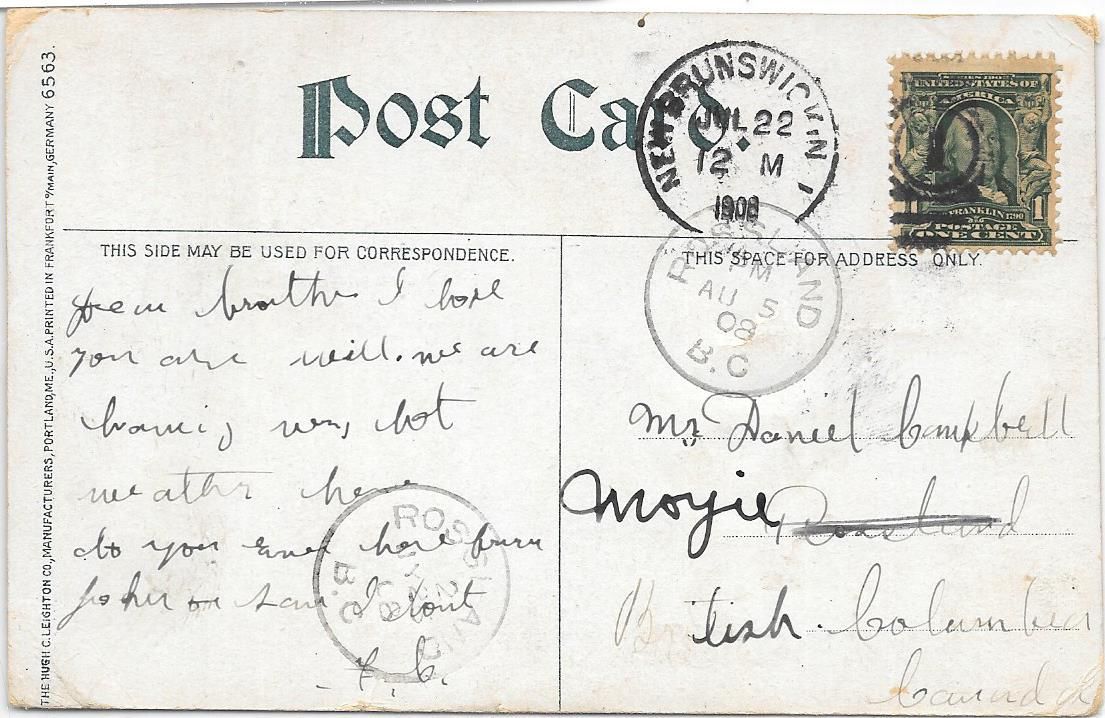 THE HUGH C. LEIGHTON CO., MANUFACTURERS, PORTLAND, ME., U.S.A. PRINTED IN FRANKFORT O/MAIN, GERMANY 6563.
Post Card.
NEW BRUNSWICK N
JUL 22
12 M
1908
SERIES 1902
UNITED STATES OF
AMERICA
FRANKLIN 1790
1 1
POSTAGE
ONE CENT
ROSSLAND
PM
AU 5
08
B.C
THIS SIDE MAY BE USED FOR CORRESPONDENCE.
THIS SPACE FOR ADDRESS ONLY.
Dear brother I hope
you are well. we are
haveing very hot
weather here
do you ever here from
John or Sam I dont
ROSSLAND
B.C
Mr Daniel Campbell
Moyie Rossland
British Columbia
Cannda